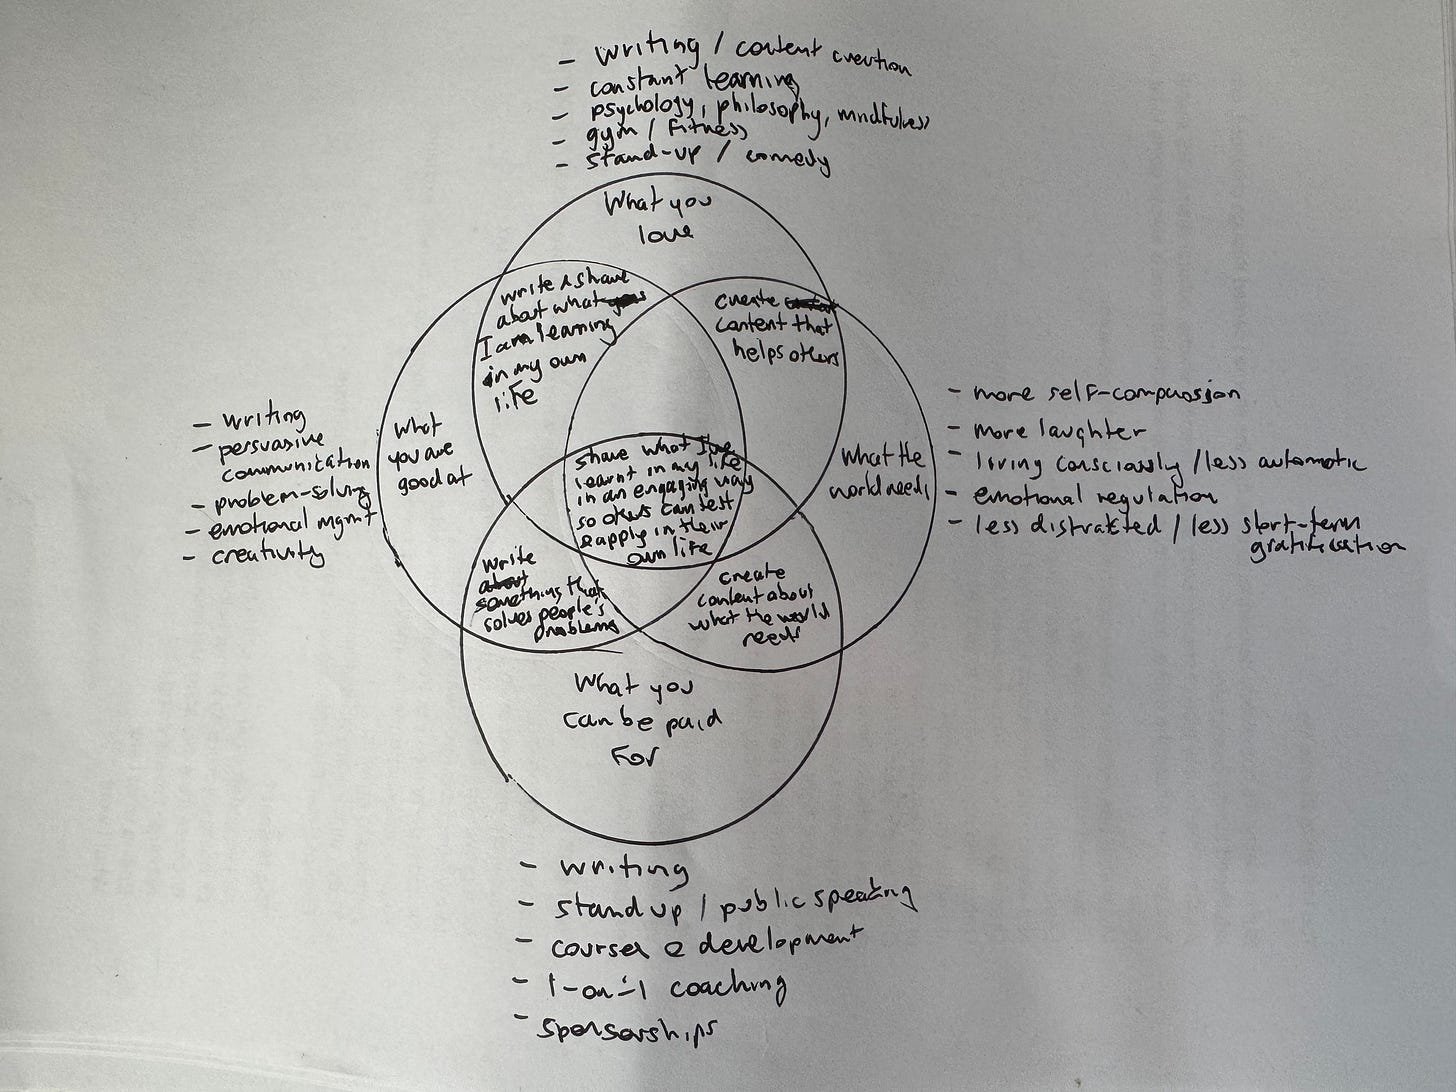 - writing / content creation
- constant learning
- psychology, philosophy, mindfulness
- gym / fitness
- stand-up / comedy
What you
love
write & share
about what
I am learning
in my own
life
create
content that
helps others
- writing
- persuasive
communication
- problem-solving
- emotional mgmt
- creativity
what
you are
good at
share what I've
learnt in my life
in an engaging way
so others can test
& apply in their
own life
What the
world needs
- more self-compassion
- more laughter
- living consciously / less automatic
- emotional regulation
- less distracted / less short-term
gratification
write
about
something that
solves people's
problems
create
content about
what the world
needs
What you
can be paid
for
- writing
- stand up / public speaking
- courses & development
- 1-on-1 coaching
- sponsorships